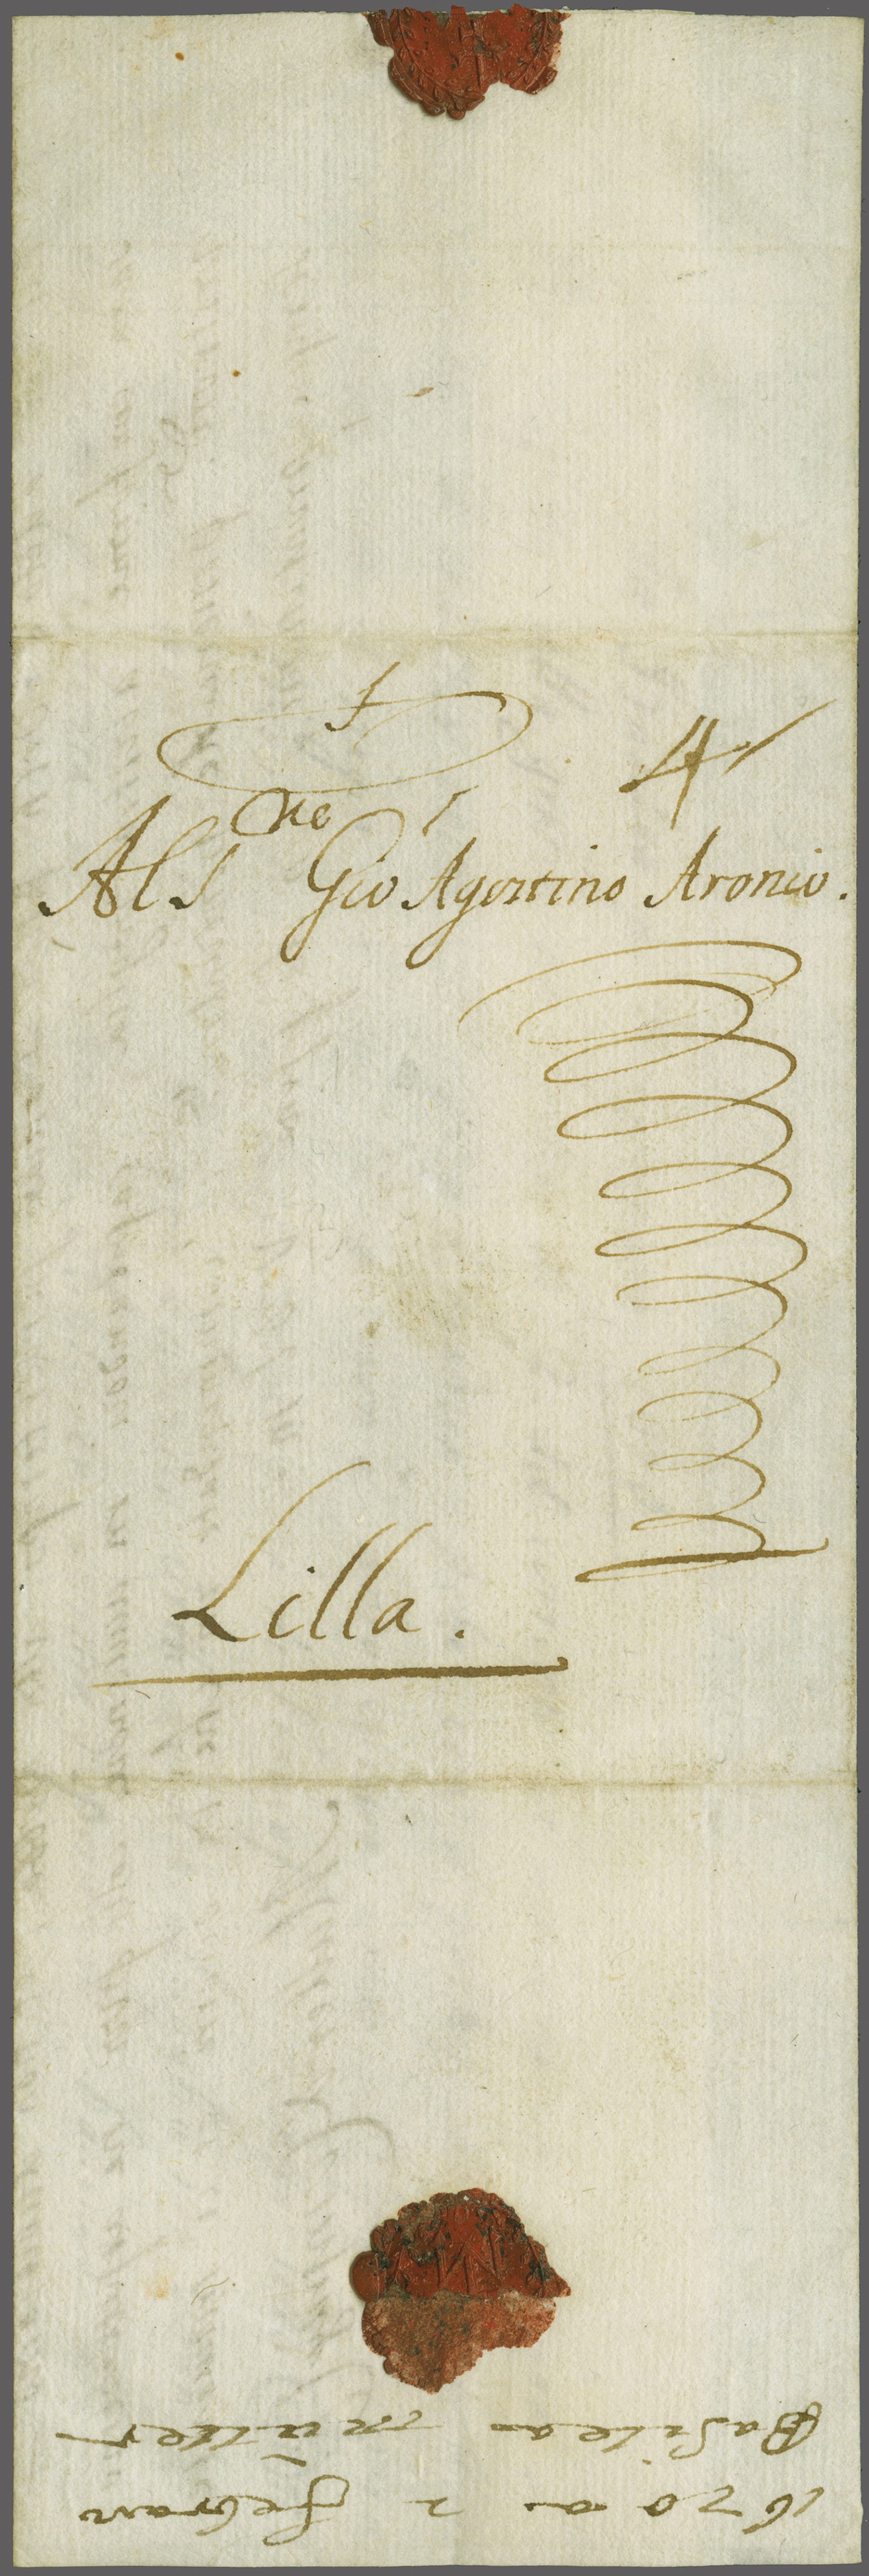 4
Al S.re Gio Agostino Aronio.
Lilla.
1670 a 2 febrar
Basilea müller